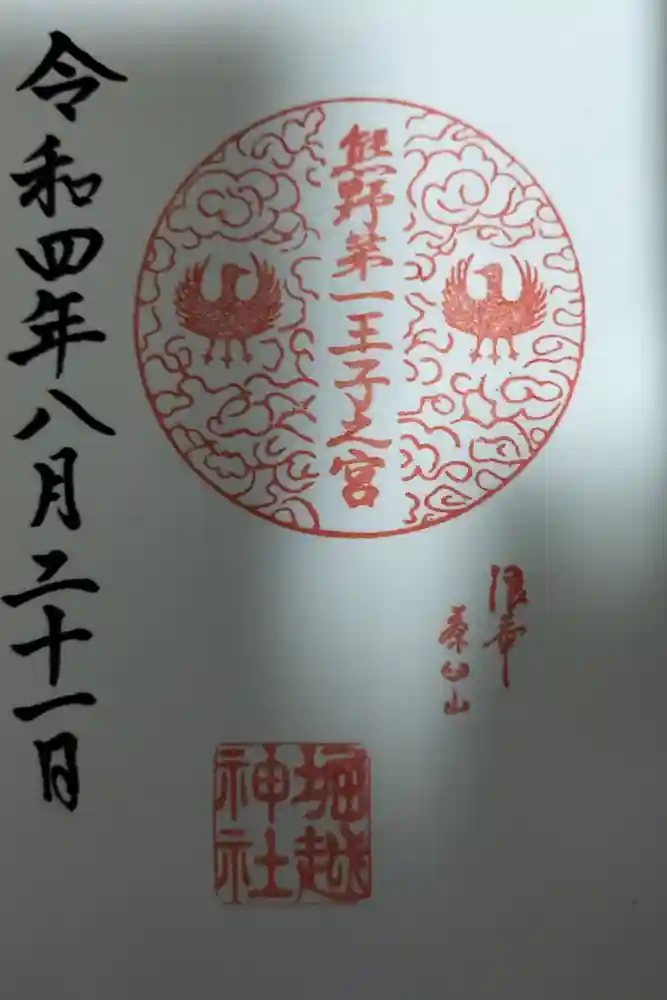 熊野第一王子之宮
浪華
茶臼山
堀越
神社
令和四年八月二十一日